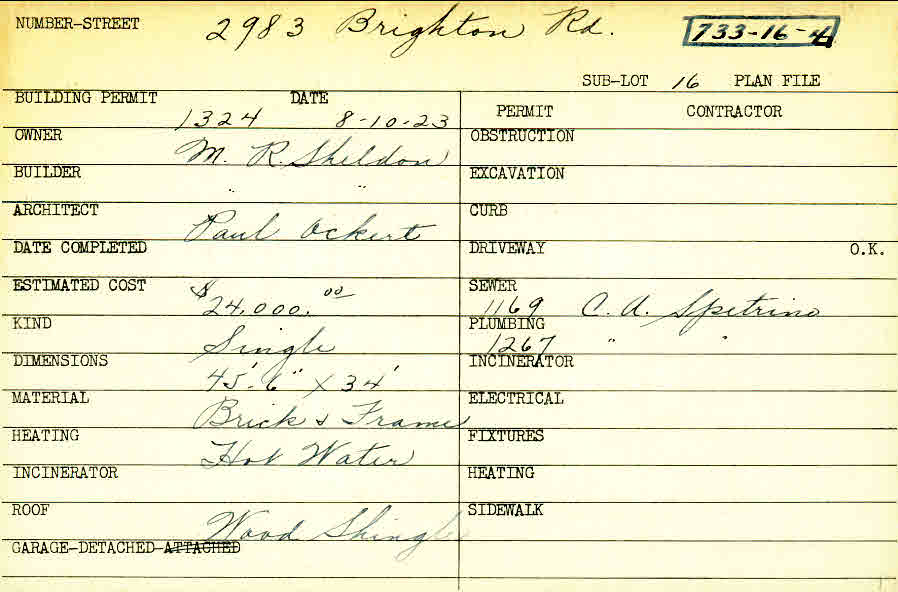 NUMBER-STREET 2983 Brighton Rd. 733-16-4
SUB-LOT 16 PLAN FILE
BUILDING PERMIT 1324 DATE 8-10-23
PERMIT CONTRACTOR
OWNER M. R. Sheldon
OBSTRUCTION
BUILDER " "
EXCAVATION
ARCHITECT Paul Ockert
CURB
DATE COMPLETED
DRIVEWAY O.K.
ESTIMATED COST $24,000.00
SEWER 1169 C. A. Spetrino
KIND Single
PLUMBING 1267 " "
DIMENSIONS 45'-6" X 34'
INCINERATOR
MATERIAL Brick & Frame
ELECTRICAL
HEATING Hot Water
FIXTURES
INCINERATOR
HEATING
ROOF Wood Shingle
SIDEWALK
GARAGE-DETACHED-ATTACHED